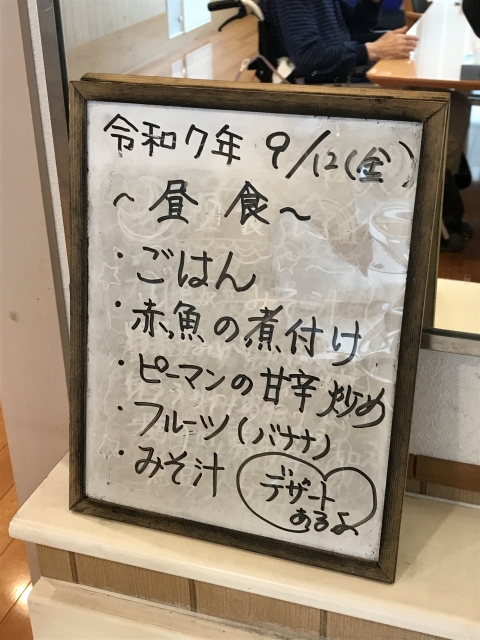 令和7年 9/12(金)
～昼食～
・ごはん
・赤魚の煮付け
・ピーマンの甘辛炒め
・フルーツ(バナナ)
・みそ汁
デザート
あるよ